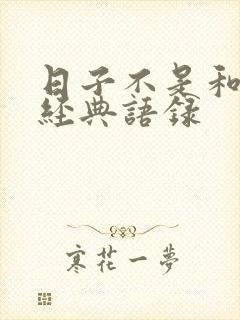 日子不是和
經典語錄
寒花一夢